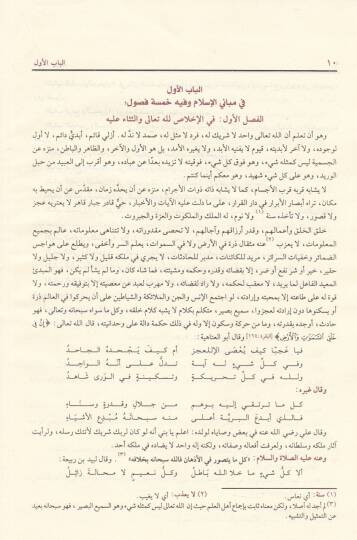 ١٠ الباب الأول
الباب الأول
في مباني الإسلام وفيه خمسة فصول:
الفصل الأول: في الإخلاص لله تعالى والثناء عليه
وهو أن تعلم أن الله تعالى واحد لا شريك له، فرد لا مثل له، صمد لا ندَّ له. أزلي قائم، أبديٌّ دائم، لا أول
لوجوده، ولا آخر لأبديته، قيوم لا يفنيه الأبد، ولا يغيره الأمد، بل هو الأول والآخر، والظاهر والباطن، منزه عن
الجسمية ليس كمثله شيء، وهو فوق كل شيء، فوقيته لا تزيده بعدًا عن عباده، وهو أقرب إلى العبيد من حبل
الوريد، وهو على كل شيء شهيد، وهو معكم أينما كنتم.
لا يشابه قربه قرب الأجسام، كما لا يشابه ذاته ذوات الأجرام، منزه عن أن يحدَّه زمان، مقدَّس عن أن يحيط به
مكان، تراه أبصار الأبرار في دار القرار، على ما دلت عليه الآيات والأخبار، حيٌّ قادر جبار قاهر لا يعتريه عجز
ولا قصور، ولا تأخذه سنة (١) ولا نوم، له الملك والملكوت والعزة والجبروت.
خلق الخلق وأعمالهم، وقدر أرزاقهم وآجالهم، لا تحصى مقدوراته، ولا تتناهى معلوماته، عالم بجميع
المعلومات، لا يعزب (٢) عنه مثقال ذرة في الأرض ولا في السموات، يعلم السر وأخفى، ويطلع على هواجس
الضمائر وخفيات السرائر، مريد للكائنات، مدبر للحادثات، لا يجري في ملكه قليل ولا كثير، ولا جليل ولا
حقير، خير أو شر نفع أو ضر، إلا بقضائه وقدره، وحكمه ومشيئته، فما شاء كان، وما لم يشأ لم يكن، فهو المبدئ
المعيد الفاعل لما يريد، لا معقب لحكمه، ولا راد لقضائه، ولا مهرب لعبد عن معصيته إلا بتوفيقه ورحمته، ولا
قوة له على طاعته إلا بمحبته وإرادته، لو اجتمع الإنس والجن والملائكة والشياطين على أن يحركوا في العالم ذرة
أو يسكنوها دون إرادته لعجزوا، سميع بصير، متكلم بكلام لا يشبه كلام خلقه، وكل ما سواه سبحانه وتعالى، فهو
حادث، أوجده بقدرته، وما من حركة وسكون إلا وله في ذلك حكمة دالة على وحدانيته، قال الله تعالى: ﴿إِنَّ فِي
خَلْقِ السَّمَوَاتِ وَالْأَرْضِ﴾ [البقرة: ١٦٤] وقال أبو العتاهية:
فيا عجبًا كيف يُعصى الإله أم كيف يَجحَده الجاحد
وفي كل شيء له آية تدلُّ على أنَّه الواحد
ولله في كل تحريكةٍ وتسكينةٍ في الورى شاهد
وقال غيره:
كل ما ترتقي إليه بوهمٍ من جلالٍ وقدرةٍ وسناءِ
فالذي أبدع البريَّة أعلى منه سبحانه مُبدِع الأشياءِ
وقال علي رضي الله عنه في بعض وصاياه لولده: اعلم يا بني أنه لو كان لربك شريك لأتتك رسله، ولرأيت
آثار ملكه وسلطانه، ولعرفت أفعاله وصفاته، ولكنه إله واحد لا يضاده في ملكه أحد.
وعنه عليه الصلاة والسلام: «كل ما يتصور في الأذهان فالله سبحانه بخلافه» (٣). وقال لبيد بن ربيعة:
ألا كلُّ شيءٍ ما خلا الله باطلُ وكلُّ نعيمٍ لا محالة زائلُ
(١) سنة: أي نعاس. (٢) لا يعزب: أي لا يغيب.
(٣) لم أجد له أصلًا، ولكن معناه ثابت بإجماع أهل العلم حيث إن الله تعالى ليس كمثله شيء وهو السميع البصير، فهو سبحانه بعيد
عن التمثيل والتشبيه.